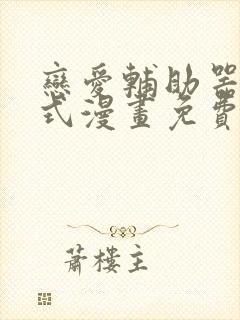 戀愛輔助器
式漫畫免費
蕭樓主